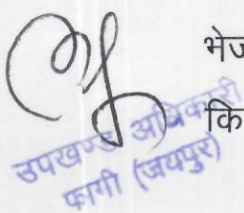 भेज
कि
उपखण्ड अधिकारी
फागी (जयपुर)